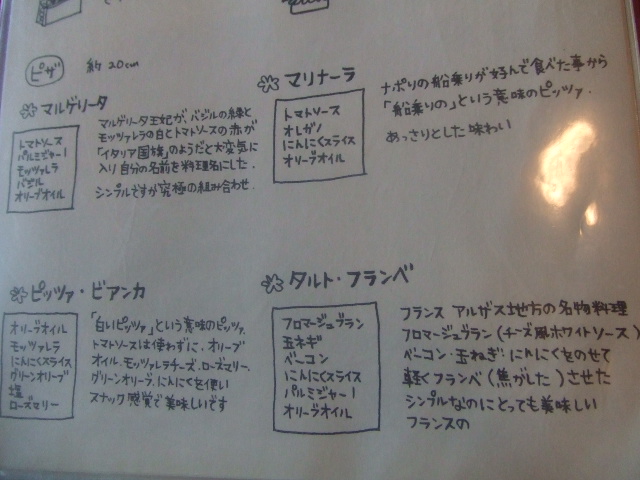 ピザ 約20cm
マルゲリータ
トマトソース
パルミジャーノ
モッツァレラ
バジル
オリーブオイル
マルゲリータ王妃が、バジルの緑と
モッツァレラの白とトマトソースの赤が
「イタリア国旗」のようだと大変気に
入り自分の名前を料理名にした。
シンプルですが究極の組み合わせ。
マリナーラ
トマトソース
オレガノ
にんにくスライス
オリーブオイル
ナポリの船乗りが好んで食べた事から
「船乗りの」という意味のピッツァ.
あっさりとした味わい
ピッツァ・ビアンカ
オリーブオイル
モッツァレラ
にんにくスライス
グリーンオリーブ
塩
ローズマリー
「白いピッツァ」という意味のピッツァ.
トマトソースは使わずに、オリーブ
オイル、モッツァレラチーズ、ローズマリー、
グリーンオリーブ、にんにくを使い
スナック感覚で美味しいです
タルト・フランベ
フロマージュブラン
玉ネギ
ベーコン
にんにくスライス
パルミジャーノ
オリーブオイル
フランス アルザス地方の名物料理
フロマージュブラン(チーズ風ホワイトソース)
ベーコン・玉ねぎ・にんにくをのせて
軽くフランベ(焦がした)させた
シンプルなのにとっても美味しい
フランスの